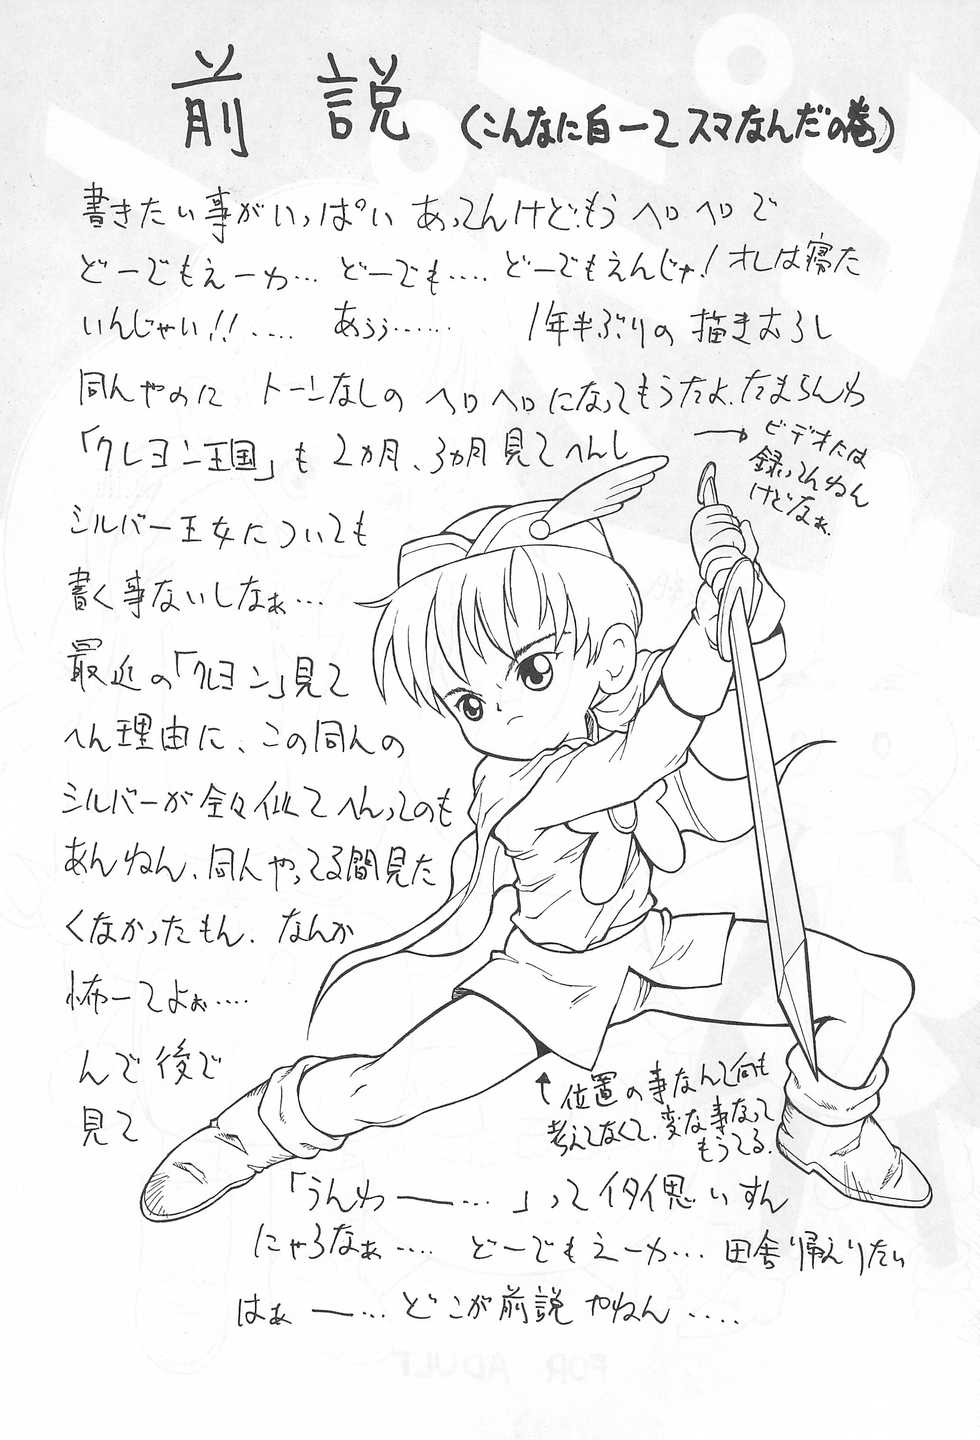 前説 (こんなに白ーてスマなんだの巻)
書きたい事がいっぱいあってんけど.もうヘロヘロで
どーでもえーか… どーでも…. どーでもえんじゃ!オレは寝た
いんじゃい!!…. あぅぅ…… 1年半ぶりの描きおろし
同人やのにトーンなしのヘロヘロになってもうたよ.たまらんわ
「クレヨン王国」も2カ月、3カ月見てへんし
→ビデオには
録ってんねん
けどなぁ.
シルバー王女についても
書く事ないしなぁ…
最近の「クレヨン」見て
へん理由に、この同人の
シルバーが全々似てへんってのも
あんねん、同人やってる間見た
くなかったもん. なんか
怖ーてよぉ….
んで後で
見て
↑位置の事なんて何も
考えてなくて、変な事なって
もうてる.
「うんわー…」ってイタイ思いすん
にゃろなぁ…. どーでもえーカ… 田舎り帰えりたい
はぁー… どこが前説やねん….
FOR ADULT